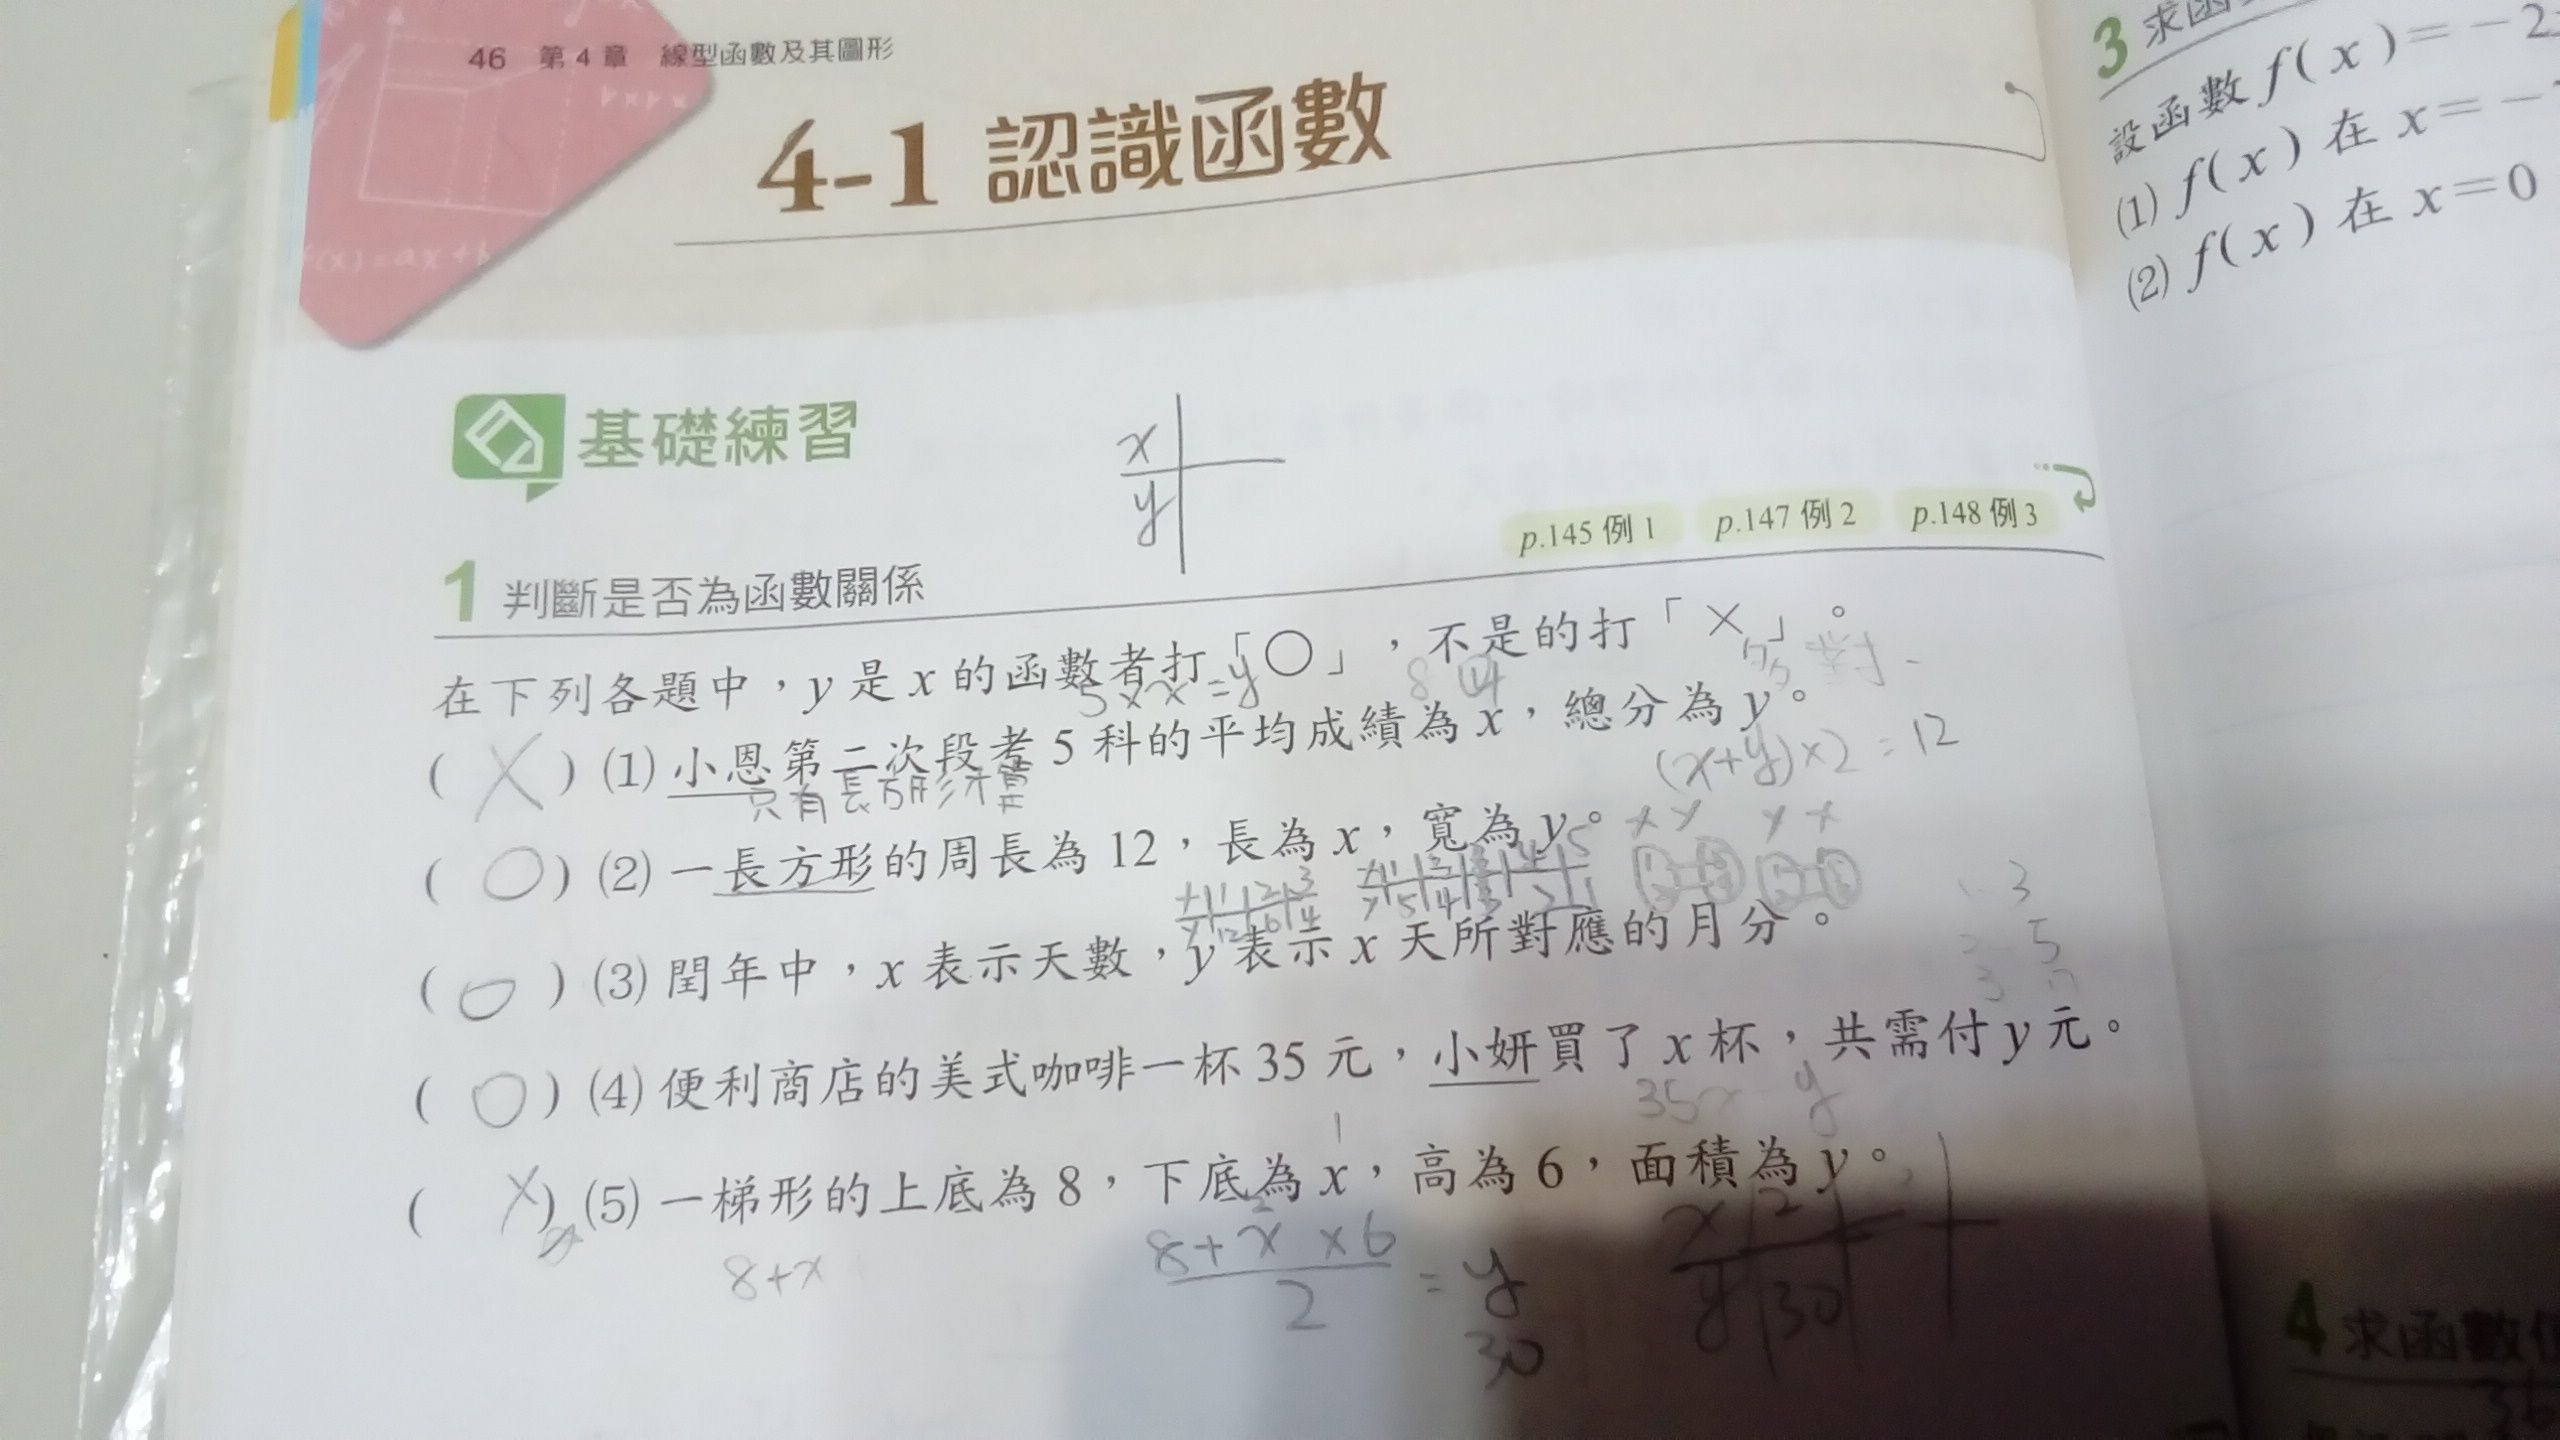 46 第4章 線型函數及其圖形
4-1 認識函數
f(x)=ax+b
基礎練習
x
y
p.145例1 p.147例2 p.148例3
1 判斷是否為函數關係
在下列各題中，y是x的函數者打「○」，不是的打「×」。
5×x=y
8
(×)(1)小恩第二次段考5科的平均成績為x，總分為y。
只有長方形才算
(x+y)×2=12
(○)(2)一長方形的周長為12，長為x，寬為y。
(○)(3)閏年中，x表示天數，y表示x天所對應的月分。
3
5
(○)(4)便利商店的美式咖啡一杯35元，小妍買了x杯，共需付y元。
35x y
1
(×)(5)一梯形的上底為8，下底為x，高為6，面積為y。
8+x
8+x×6
2
=y
30
x 2
y 30
3 求函
設函數f(x)=-2
(1) f(x)在x=-
(2) f(x)在x=0
4 求函數
36